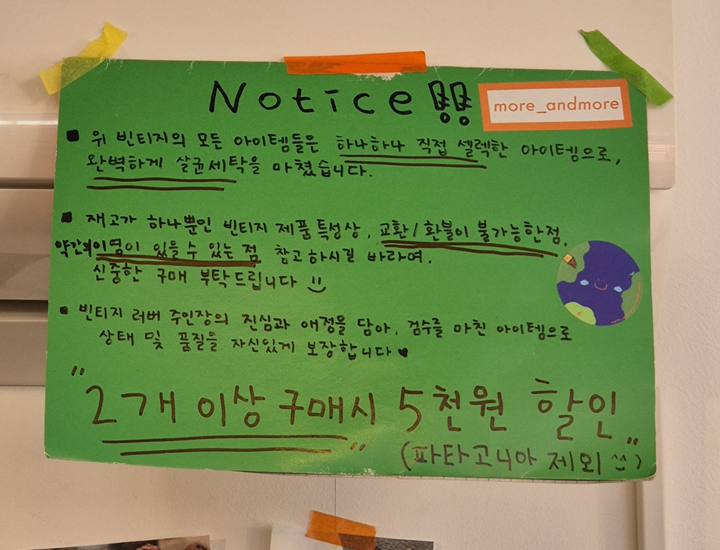 Notice!!
more_andmore
■ 위 빈티지의 모든 아이템들은 하나하나 직접 셀렉한 아이템으로,
완벽하게 살균세탁을 마쳤습니다.
■ 재고가 하나뿐인 빈티지 제품 특성상, 교환/환불이 불가능한점,
약간의 이염이 있을 수 있는 점 참고하시길 바라며,
신중한 구매 부탁드립니다
■ 빈티지 러버 주인장의 진심과 애정을 담아, 검수를 마친 아이템으로
상태 및 품질을 자신있게 보장합니다♥
"2개 이상 구매시" 5천원 할인"
(파타고니아 제외 ^^)